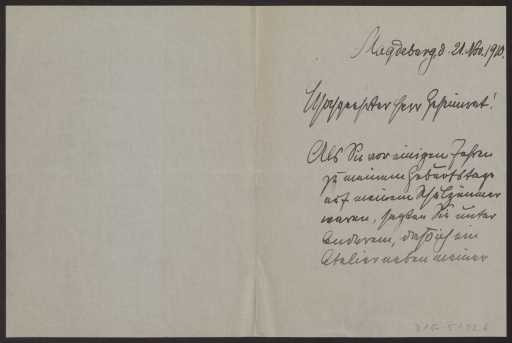 Magdeburg, d. 21. Nov. 1910.
Hochgeehrter Herr Geheimrat!
Als Sie vor einigen Jahren
zu meinem Geburtstage
auf meinem Schulzimmer
waren, sagten Sie unter
Anderem, daß ich ein
Atelier neben meiner